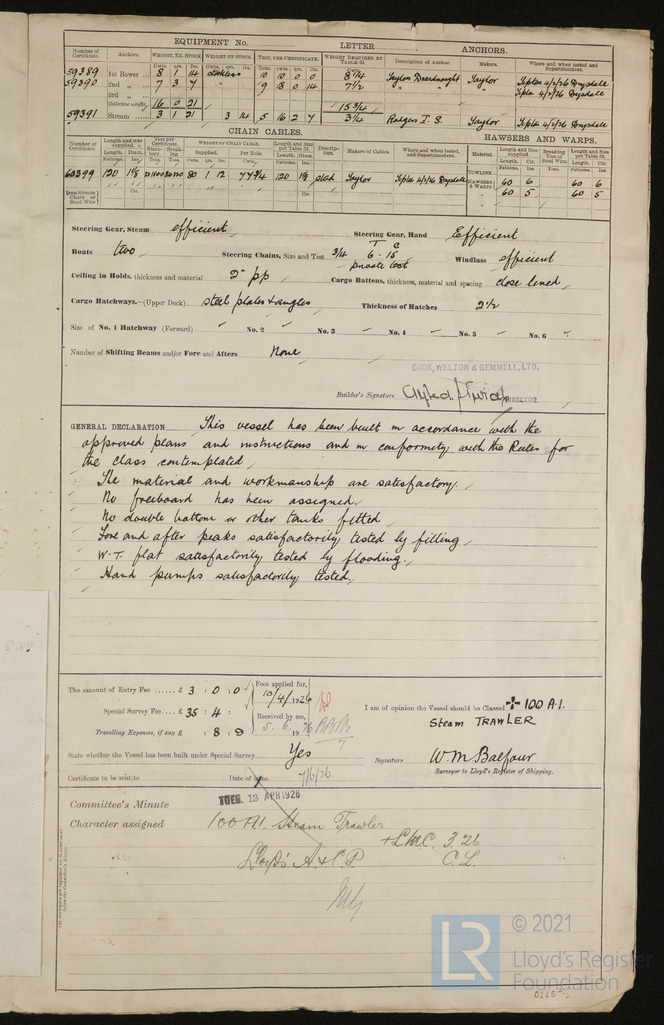 EQUIPMENT No. LETTER ANCHORS.
Number of Certificate. Anchors. WEIGHT, EX. STOCK. WEIGHT OF STOCK. TEST, PER CERTIFICATE. WEIGHT REQUIRED BY TABLE 31. Description of Anchor. Makers. Where and when tested and Superintendent.
59389 1st Bower 8 1 14 stockless 10 10 0 0 8 1/4 Taylors Dreadnought Taylor Tipton 4/2/26 Drysdale
59390 2nd „ 7 3 7 „ 9 18 0 14 7 1/2 „ „ „ Tipton 4/2/26 Drysdale
3rd „
Collective weight 16 0 21 15 3/4
59391 Stream 3 1 21 3 14 5 16 2 7 3 1/4 Rodgers I. S. Taylor Tipton 4/2/26 Drysdale
CHAIN CABLES. HAWSERS AND WARPS.
Number of Certificate. Length and size supplied. Test per Certificate. WEIGHT OF CHAIN CABLE. Length and size per Table 31. Description. Makers of Cables. Where and when tested, and Superintendent. Material Length and Size supplied. Breaking Test of Steel Wire. Length and Size per Table 31.
60399 120 1 1/8 80 1 12 77 3/4 120 1 1/8 stud Taylor Tipton 4/2/26 Drysdale
TOWLINE
HAWSERS & WARPS 60 6 60 6
60 5 60 5
Iron Stream Chain or Steel Wire
Steering Gear, Steam efficient Steering Gear, Hand Efficient
Boats two Steering Chains, Size and Test 3/4 T 6 C 15 private test Windlass efficient
Ceiling in Holds, thickness and material 2" pp Cargo Battens, thickness, material and spacing close lined
Cargo Hatchways.—(Upper Deck) steel plates & angles Thickness of Hatches 2 1/2
Size of No. 1 Hatchway (Forward) No. 2 No. 3 No. 4 No. 5 No. 6
Number of Shifting Beams and/or Fore and Afters None
COOK, WELTON & GEMMELL, LTD.
Builder's Signature DIRECTOR
GENERAL DECLARATION This vessel has been built in accordance with the
approved plans and instructions and in conformity with the Rules for
the class contemplated
The material and workmanship are satisfactory.
No freeboard has been assigned
No double bottom or other tanks fitted
Fore and after peaks satisfactorily tested by filling
W.T. flat satisfactorily tested by flooding.
Hand pumps satisfactorily tested.
The amount of Entry Fee £ 3 : 0 : 0 Fees applied for,
10/4/1926
Special Survey Fee £ 35 : 4 : I am of opinion the Vessel should be Classed ✠ 100 A.1.
STEAM TRAWLER
Received by me,
5. 6. 1926
Travelling Expenses, if any £ : 8 : 9
State whether the Vessel has been built under Special Survey Yes Signature W. M. Balfour
Surveyor to Lloyd's Register of Shipping.
Certificate to be sent to Date of issue 7/6/26.
TUES. 13 APR 1926
Committee's Minute
Character assigned 100 A1. Steam Trawler
+ LMC. 3.26
Lloyd's A & C.P. C.L.
© 2021
LR
Lloyd's Register
Foundation